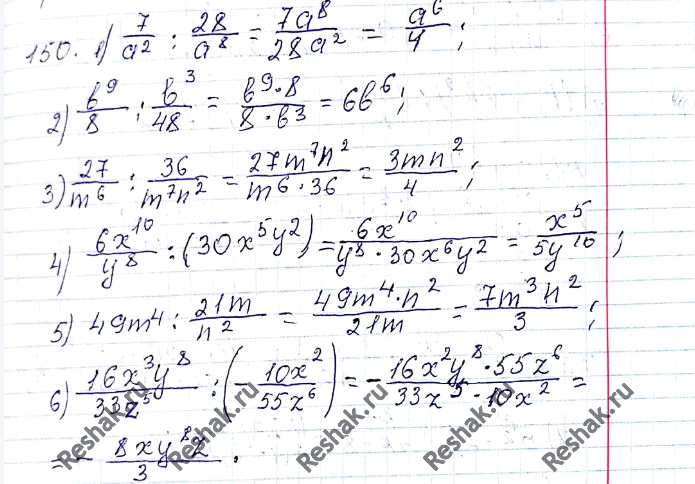 150. 1) 7/a² : 28/a⁸ = 7a⁸/28a² = a⁶/4 ;
2) в⁹/8 : в³/48 = в⁹·8/8·в³ = 6в⁶ ;
3) 27/m⁶ : 36/m⁷n² = 27m⁷n²/m⁶·36 = 3mn²/4 ;
4) 6x¹⁰/y⁸ : (30x⁵y²) = 6x¹⁰/y⁸·30x⁶y² = x⁵/5y¹⁰ ;
5) 49m⁴ : 21m/n² = 49m⁴·n²/21m = 7m³n²/3 ;
6) 16x³y⁸/33z⁵ : (- 10x²/55z⁶) = - 16x²y⁸·55z⁶/33z⁵·10x² =
= - 8xy⁸z/3 .
Reshak.ru
Reshak.ru
Reshak.ru
Reshak.ru
Reshak.ru